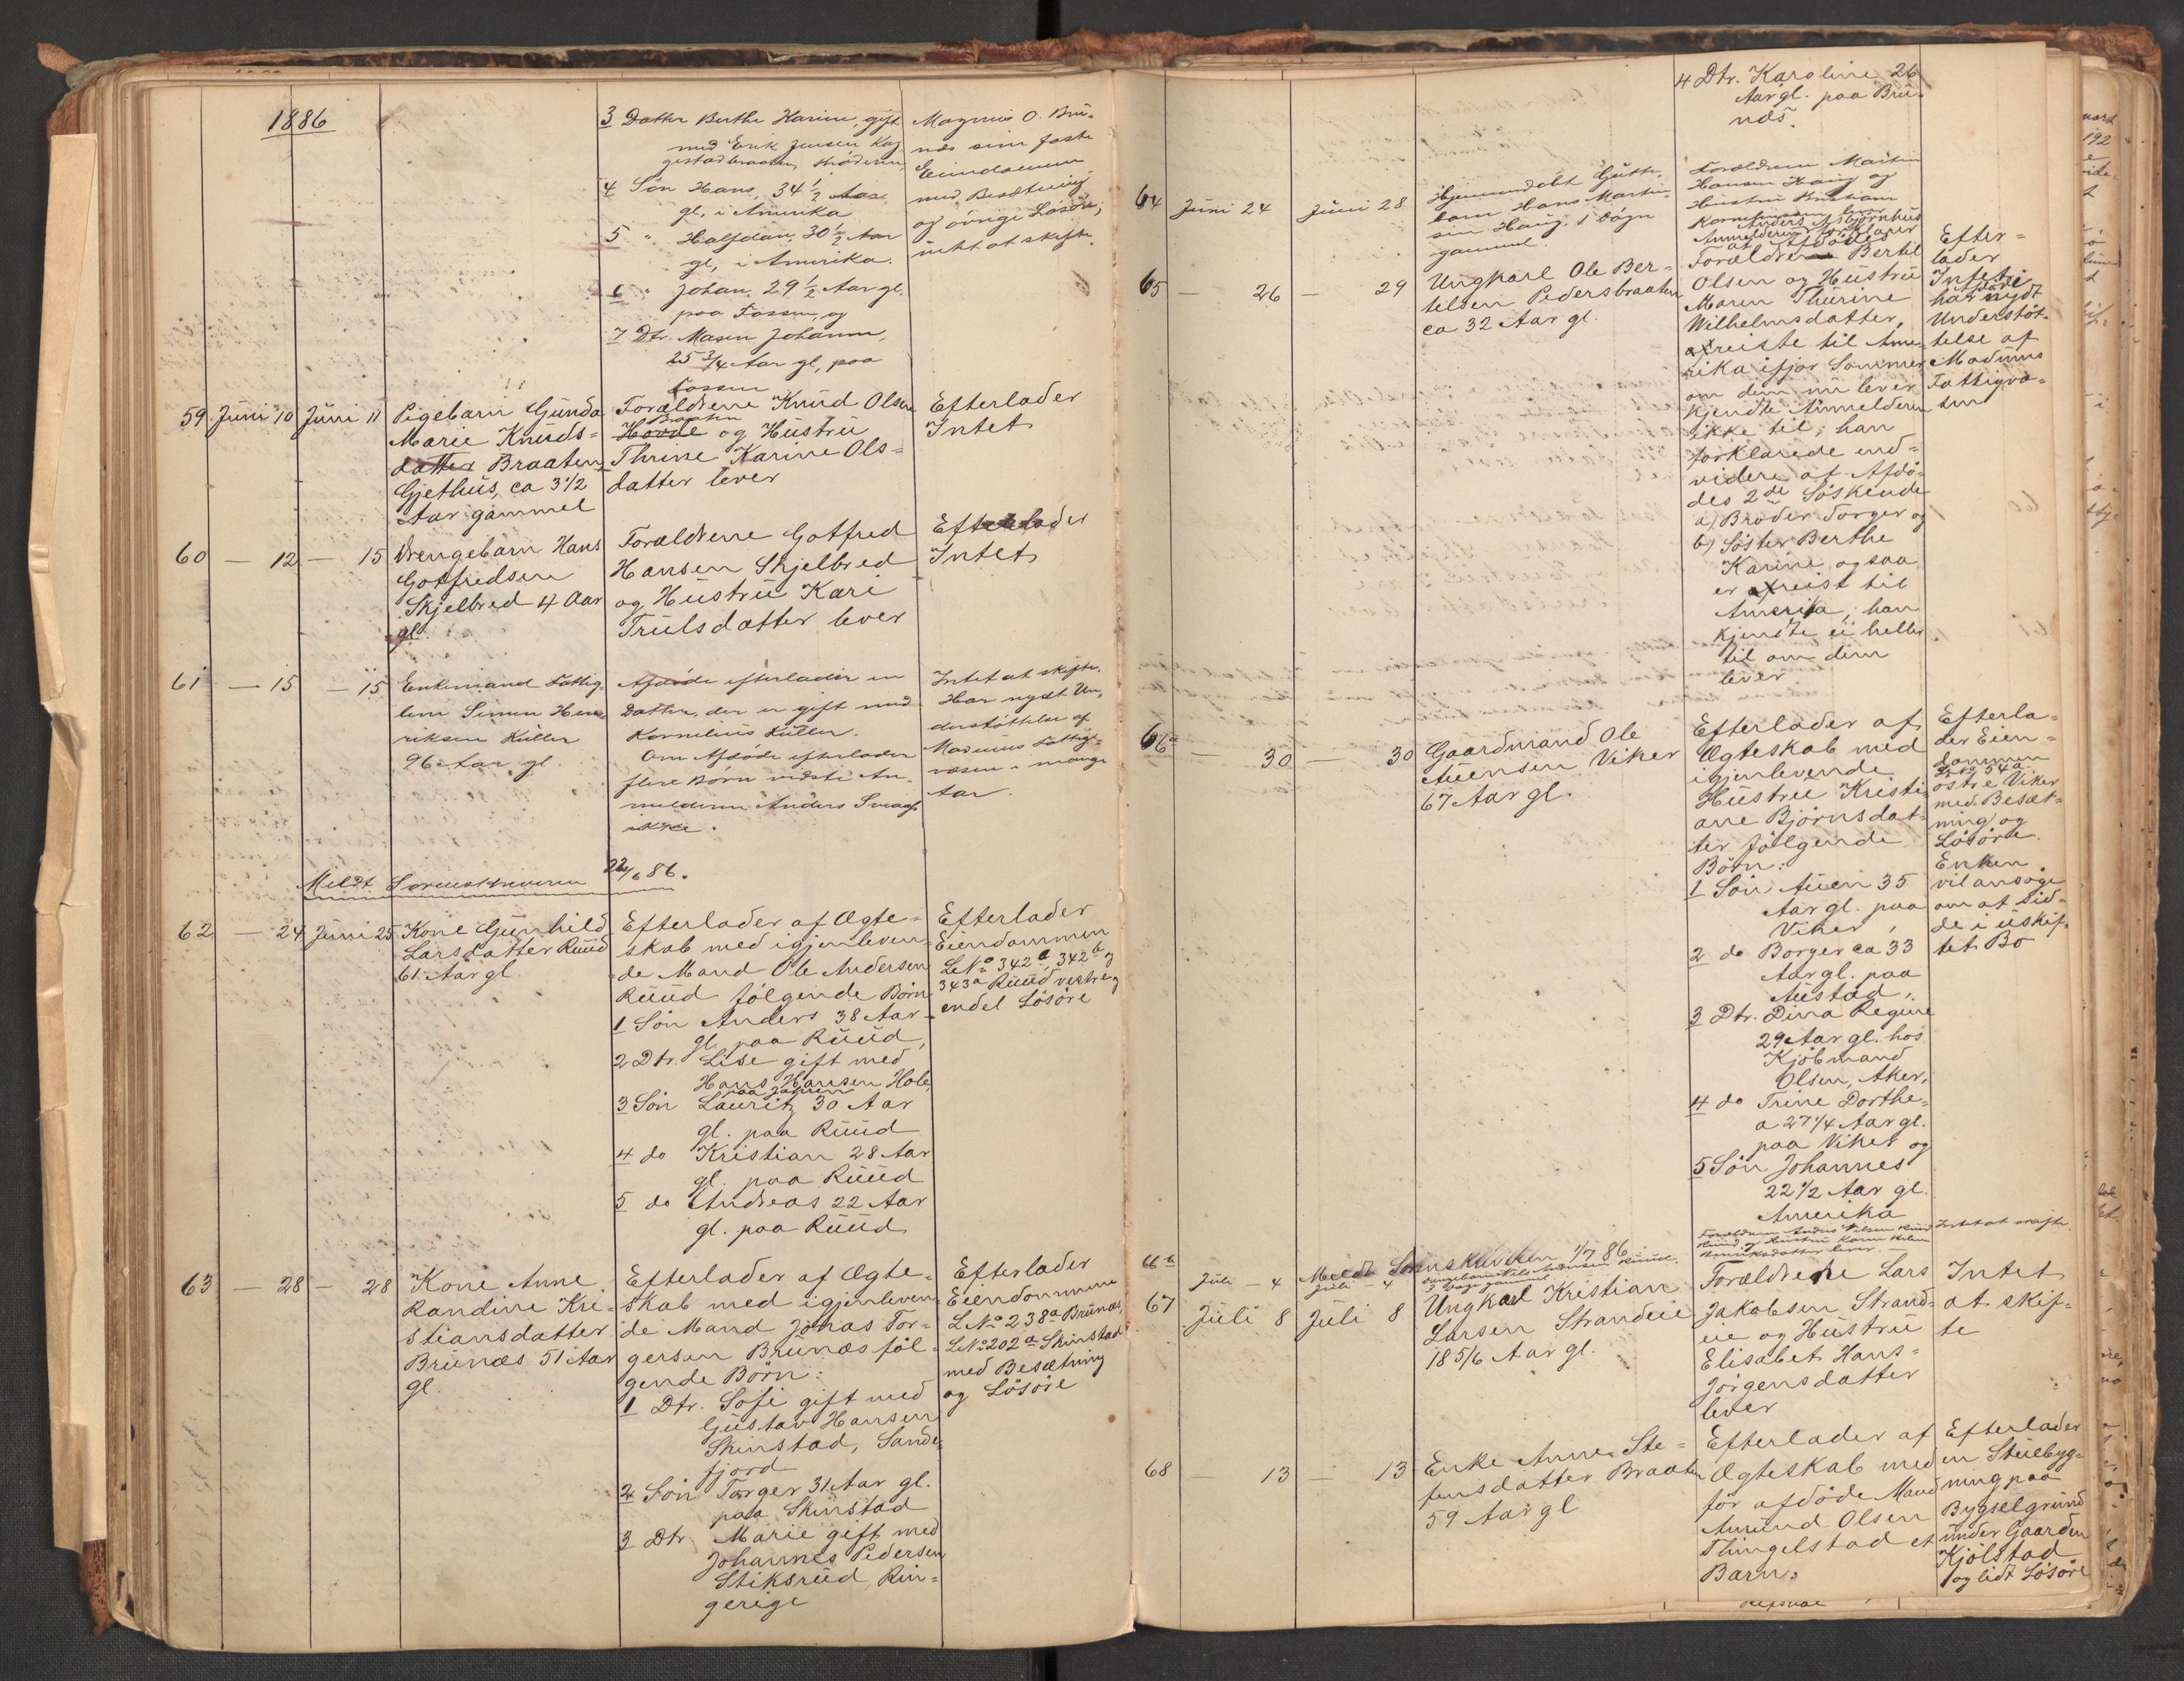 1886
3 Datter Berthe Karine, gift
med Erik Jensen Kag-
gestadbraaten,
4 Søn Hans, 34 1/2 Aar
gl, i Amerika
5 " Halfdan, 30 1/2 Aar
gl, i Amerika.
6 " Johan, 29 1/2 Aar gl.
paa Fossum, og
7 Dtr. Maren Johanne,
25 3/4 Aar gl, paa
Fossum
Magnus O. Brü-
næs sine faste
Eiendomme
med Besætning
og øvrige Løsøre;
intet at skifte.
59 Juni 10 Juni 11
Pigebarn Gunda
Marie Knuds-
datter Braaten
Gjethus, ca 3 1/2
Aar gammel
Forældrene Knud Olsen
Braaten
Hovde og Hustru
Thrine Karine Ols-
datter lever
Efterlader
Intet
60 — 12 — 15
Drengebarn Hans
Gotfredsen
Skjelbred 4 Aar
gl.
Forældrene Gotfred
Hansen Skjelbred
og Hustru Kari
Trulsdatter lever
Efterlader
Intet
61 — 15 — 15
Enkemand Fattig-
lem Simen Hen-
riksen Kullen
96 Aar gl.
Afdøde efterlader en
Datter, der er gift med
Kornelius Kullen.
Om Afdøde efterlader
flere Børn vidste An-
melderen Anders Snag
ikke.
Intet at skifte.
Har nydt Un-
derstøttelse af
Modums Fattig-
væsen i mange
Aar.
Meldt Sorenskriveren 22/6 86.
62 — 24 Juni 25
Kone Gunhild
Larsdatter Ruud
61 Aar gl.
Efterlader af Ægte-
skab med igjenleven-
de Mand Ole Andersen
Ruud følgende Børn
1 Søn Anders 38 Aar
gl. paa Ruud,
2 Dtr. Lise gift med
Hans Hansen Hole,
3 Søn Lauritz 30 Aar
gl. paa Ruud
4 do Kristian 28 Aar
gl. paa Ruud
5 do Andreas 22 Aar
gl. paa Ruud
Efterlader
Eiendommen
L No 342a, 342b og
343a Ruud vestre og
endel Løsøre
63 — 28 — 28
Kone Anne
Randine Kri-
stiansdatter
Brunæs 51 Aar
gl.
Efterlader af Ægte-
skab med igjenleven-
de Mand Jonas Tor-
gersen Brunæs føl-
gende Børn:
1 Dtr. Sofie gift med
Gustav Hansen
Skinstad, Sande-
fjord
2 Søn Torger 31 Aar gl.
paa Skinstad
3 Dtr. Marie gift med
Johannes Pedersen
Stiksrud, Rin-
gerige
Efterlader
Eiendommene
L No 238a Brunæs,
L No 202a Skinstad
med Besætning
og Løsøre
4 Dtr. Karoline 26
Aar gl. paa Bru-
næs.
64 Juni 24 Juni 28
Hjemmedøbt Gutte-
barn Hans Martin-
sen Haug, 1 Døgn
gammel.
Forældrene Martin
Hansen Haug og
Hustru
65 — 26 — 29
Ungkarl Ole Ber-
telsen Pedersbraaten
ca 32 Aar gl.
Anmelderen
forklarer
at Afdødes
Forældre Bertel
Olsen og Hustru
Maren Thurine
Wilhelmsdatter,
afreiste til Ame-
rika ifjor Sommer
om dem nu lever
kjendte Anmelderen
ikke til; han
forklarede end-
videre at Afdø-
des 2de Søskende
a) Broder Torger og
b) Søster Berthe
Karine ogsaa
er afreist til
Amerika; han
kjendte ei heller
til om dem
lever
Efter-
lader
Intet.
Afdøde
har nydt
Understøt-
telse af
Modums
Fattigvæ-
sen
66a — 30 — 30
Gaardmand Ole
Auensen Viker
67 Aar gl.
Efterlader af
Ægteskab med
igjenlevende
Hustru Kristi-
ane Bjørnsdat-
ter følgende
Børn:
1 Søn Auen 35
Aar gl. paa
Viker,
2 do Borger ca 33
Aar gl. paa
Austad,
3 Dtr. Dina Regine
29 Aar gl. hos
Kjøbmand
Olsen, Aker,
4 do Trine Dorthe-
a 27 1/4 Aar gl.
paa Viker og
5 Søn Johannes
22 1/2 Aar gl.
Amerika
Efterla-
der Eien-
dommen
L No 54a
østre Viker
med Besæt-
ning og
Løsøre.
Enken
vil ansøge
om at sid-
de i uskif-
tet Bo
Meldt Sorenskriveren 1/7 86
66b Juli — 4 Juli — 4
Drengebarn Nils Andersen Ruud,
3 Dage gammel
Forældrene Anders Nilsen Ruud
og Hustru Karen
lever.
Intet at skifte.
67 Juli 8 Juli 8
Ungkarl Kristian
Larsen Strandeie
18 5/6 Aar gl.
Forældrene Lars
Jakobsen Strand-
eie og Hustru
Elisabet Hans-
Jørgensdatter
lever
Intet
at skif-
te
68 — 13 — 13
Enke Anne Ste-
fensdatter Braaten
59 Aar gl
Efterlader af
Ægteskab med
før afdøde Mand
Amund Olsen
Thingelstad et
Barn:
Efterlader
en Stuebyg-
ning paa
Bygselgrund
under Gaarden
Kjølstad
og lidt Løsøre